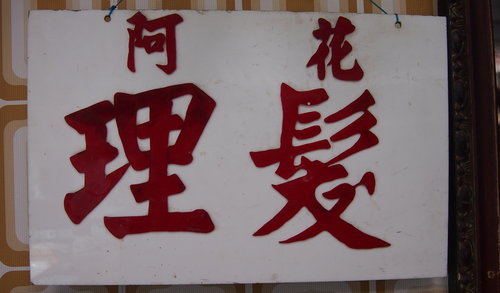 阿花
理髮